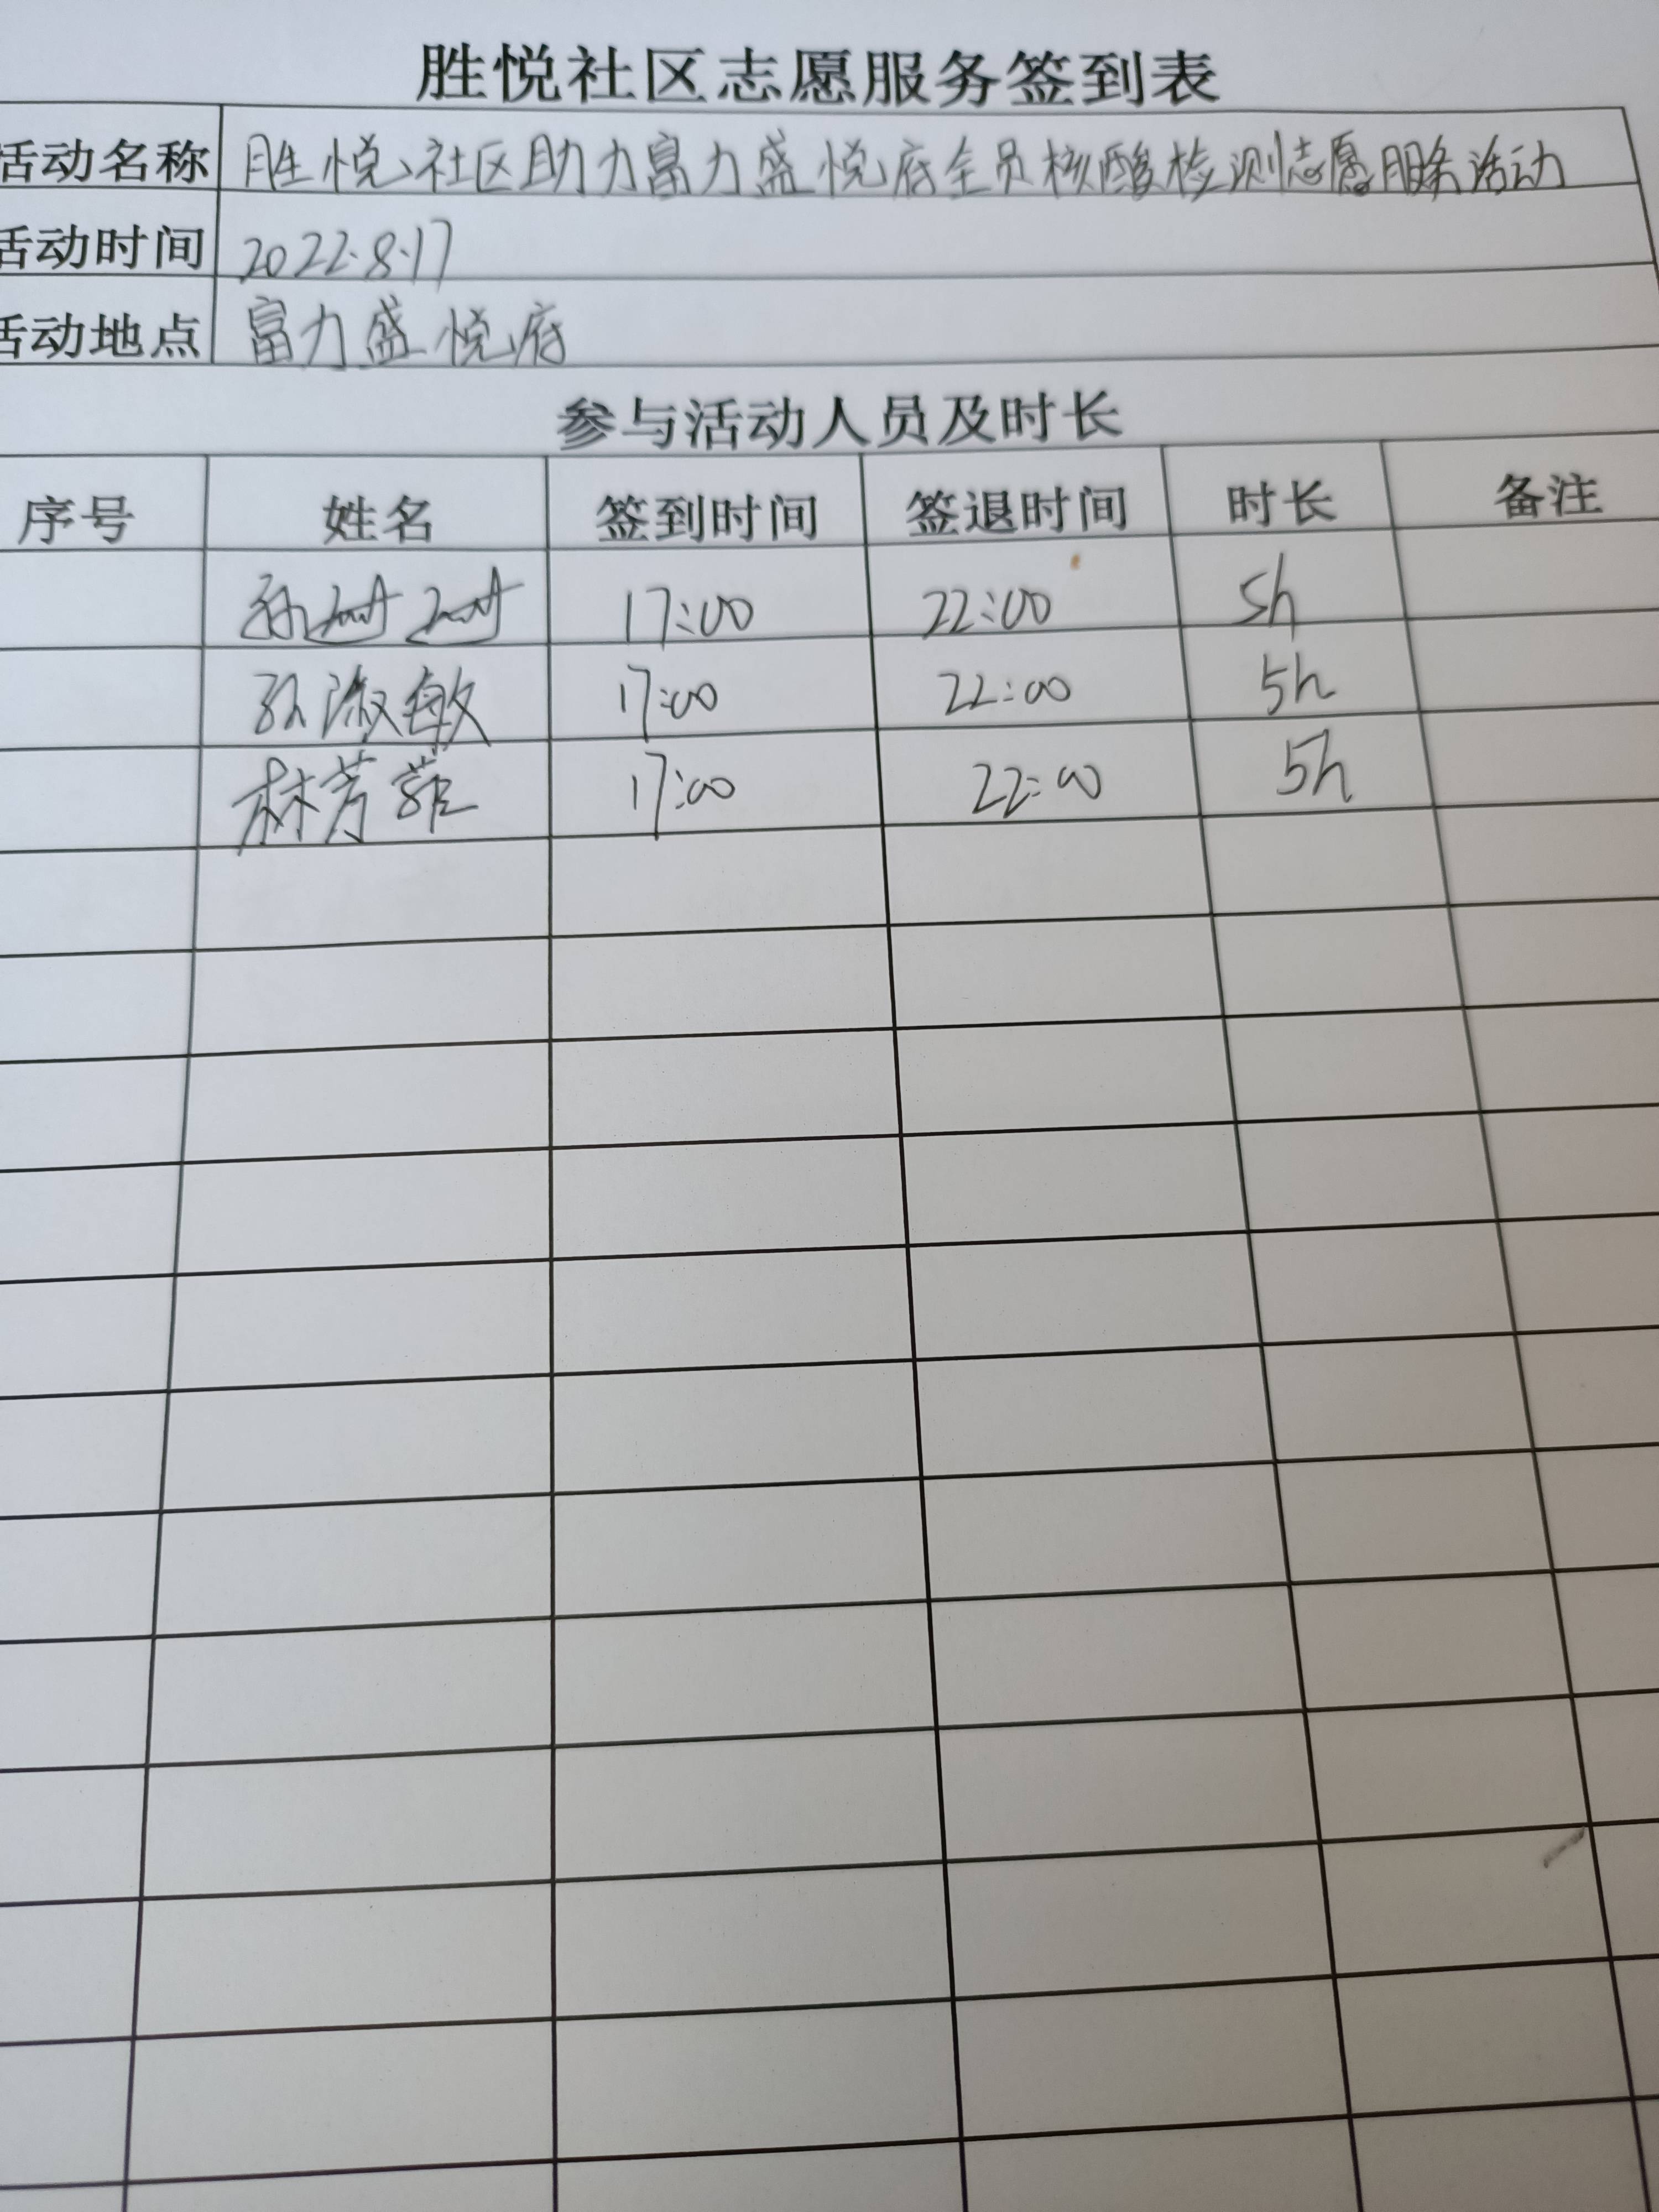 胜悦社区志愿服务签到表
活动名称 胜悦社区助力富力盛悦府全员核酸检测志愿服务活动
活动时间 2022.8.17
活动地点 富力盛悦府
参与活动人员及时长
序号 姓名 签到时间 签退时间 时长 备注
孙 17:00 22:00 5h
孙淑敏 17:00 22:00 5h
林芳 17:00 22:00 5h